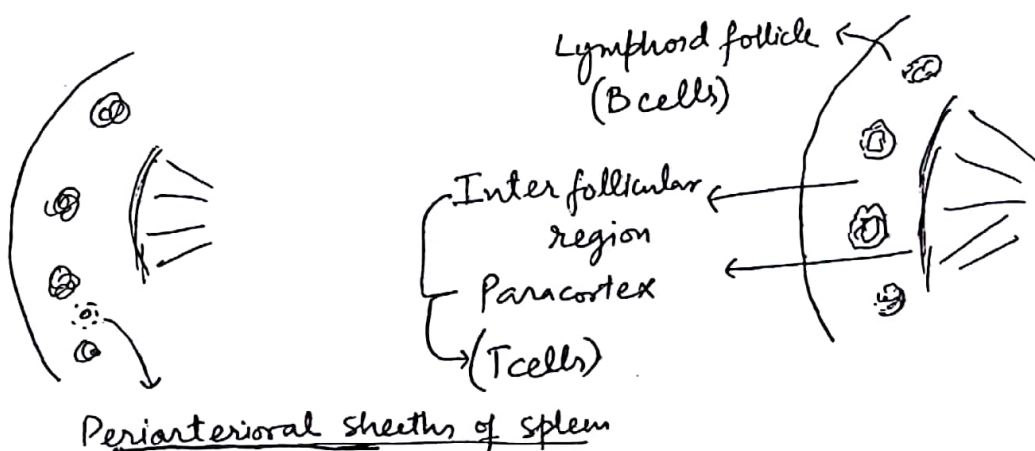 Lymphoid follicle
(B cells)
Inter follicular
region
Paracortex
(T cells)
Periarterioral sheeths of spleen